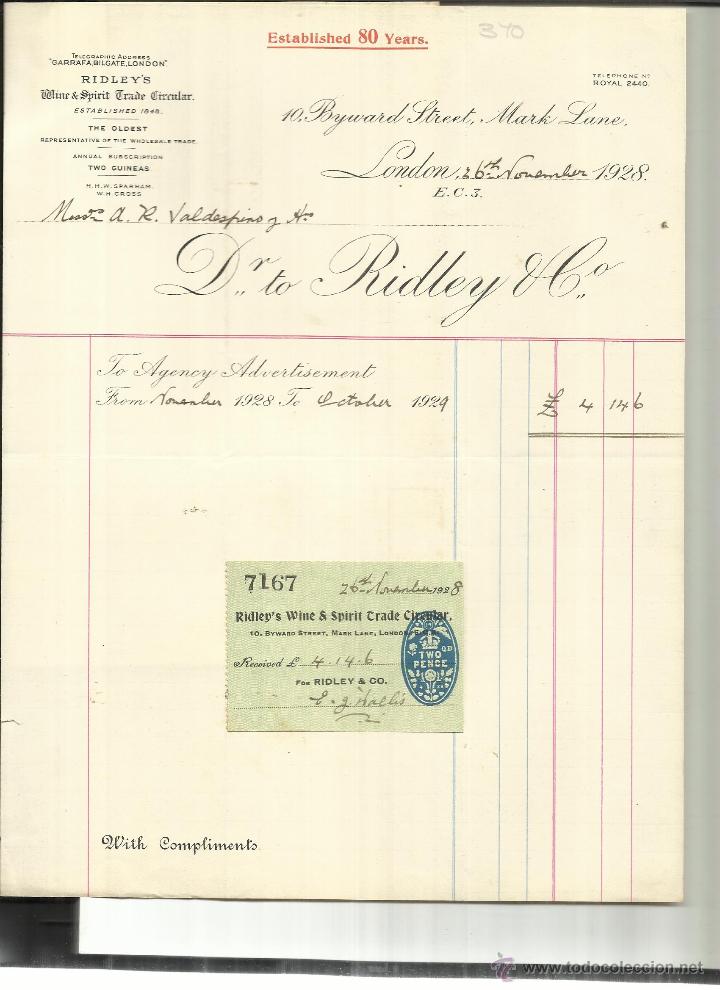 Established 80 Years.
370
TELEGRAPHIC ADDRESS
"GARRAFA, BILGATE, LONDON"
RIDLEY'S
Wine & Spirit Trade Circular.
ESTABLISHED 1848.
THE OLDEST
REPRESENTATIVE OF THE WHOLESALE TRADE.
ANNUAL SUBSCRIPTION
TWO GUINEAS
H.H.W. SPARHAM.
W.H. CROSS
TELEPHONE No
ROYAL 2440.
10, Byward Street, Mark Lane,
London, 26th November 1928.
E.C.3.
Messrs A. R. Valdespino y Hno
Dr. to Ridley & Co.
To Agency Advertisement
From November 1928 To October 1929
£ 4 14 6
7167
26th November 1928
Ridley's Wine & Spirit Trade Circular,
10, BYWARD STREET, MARK LANE, LONDON,
Received £ 4.14.6
FOR RIDLEY & CO.
TWO
PENCE
With Compliments
www.todocoleccion.net